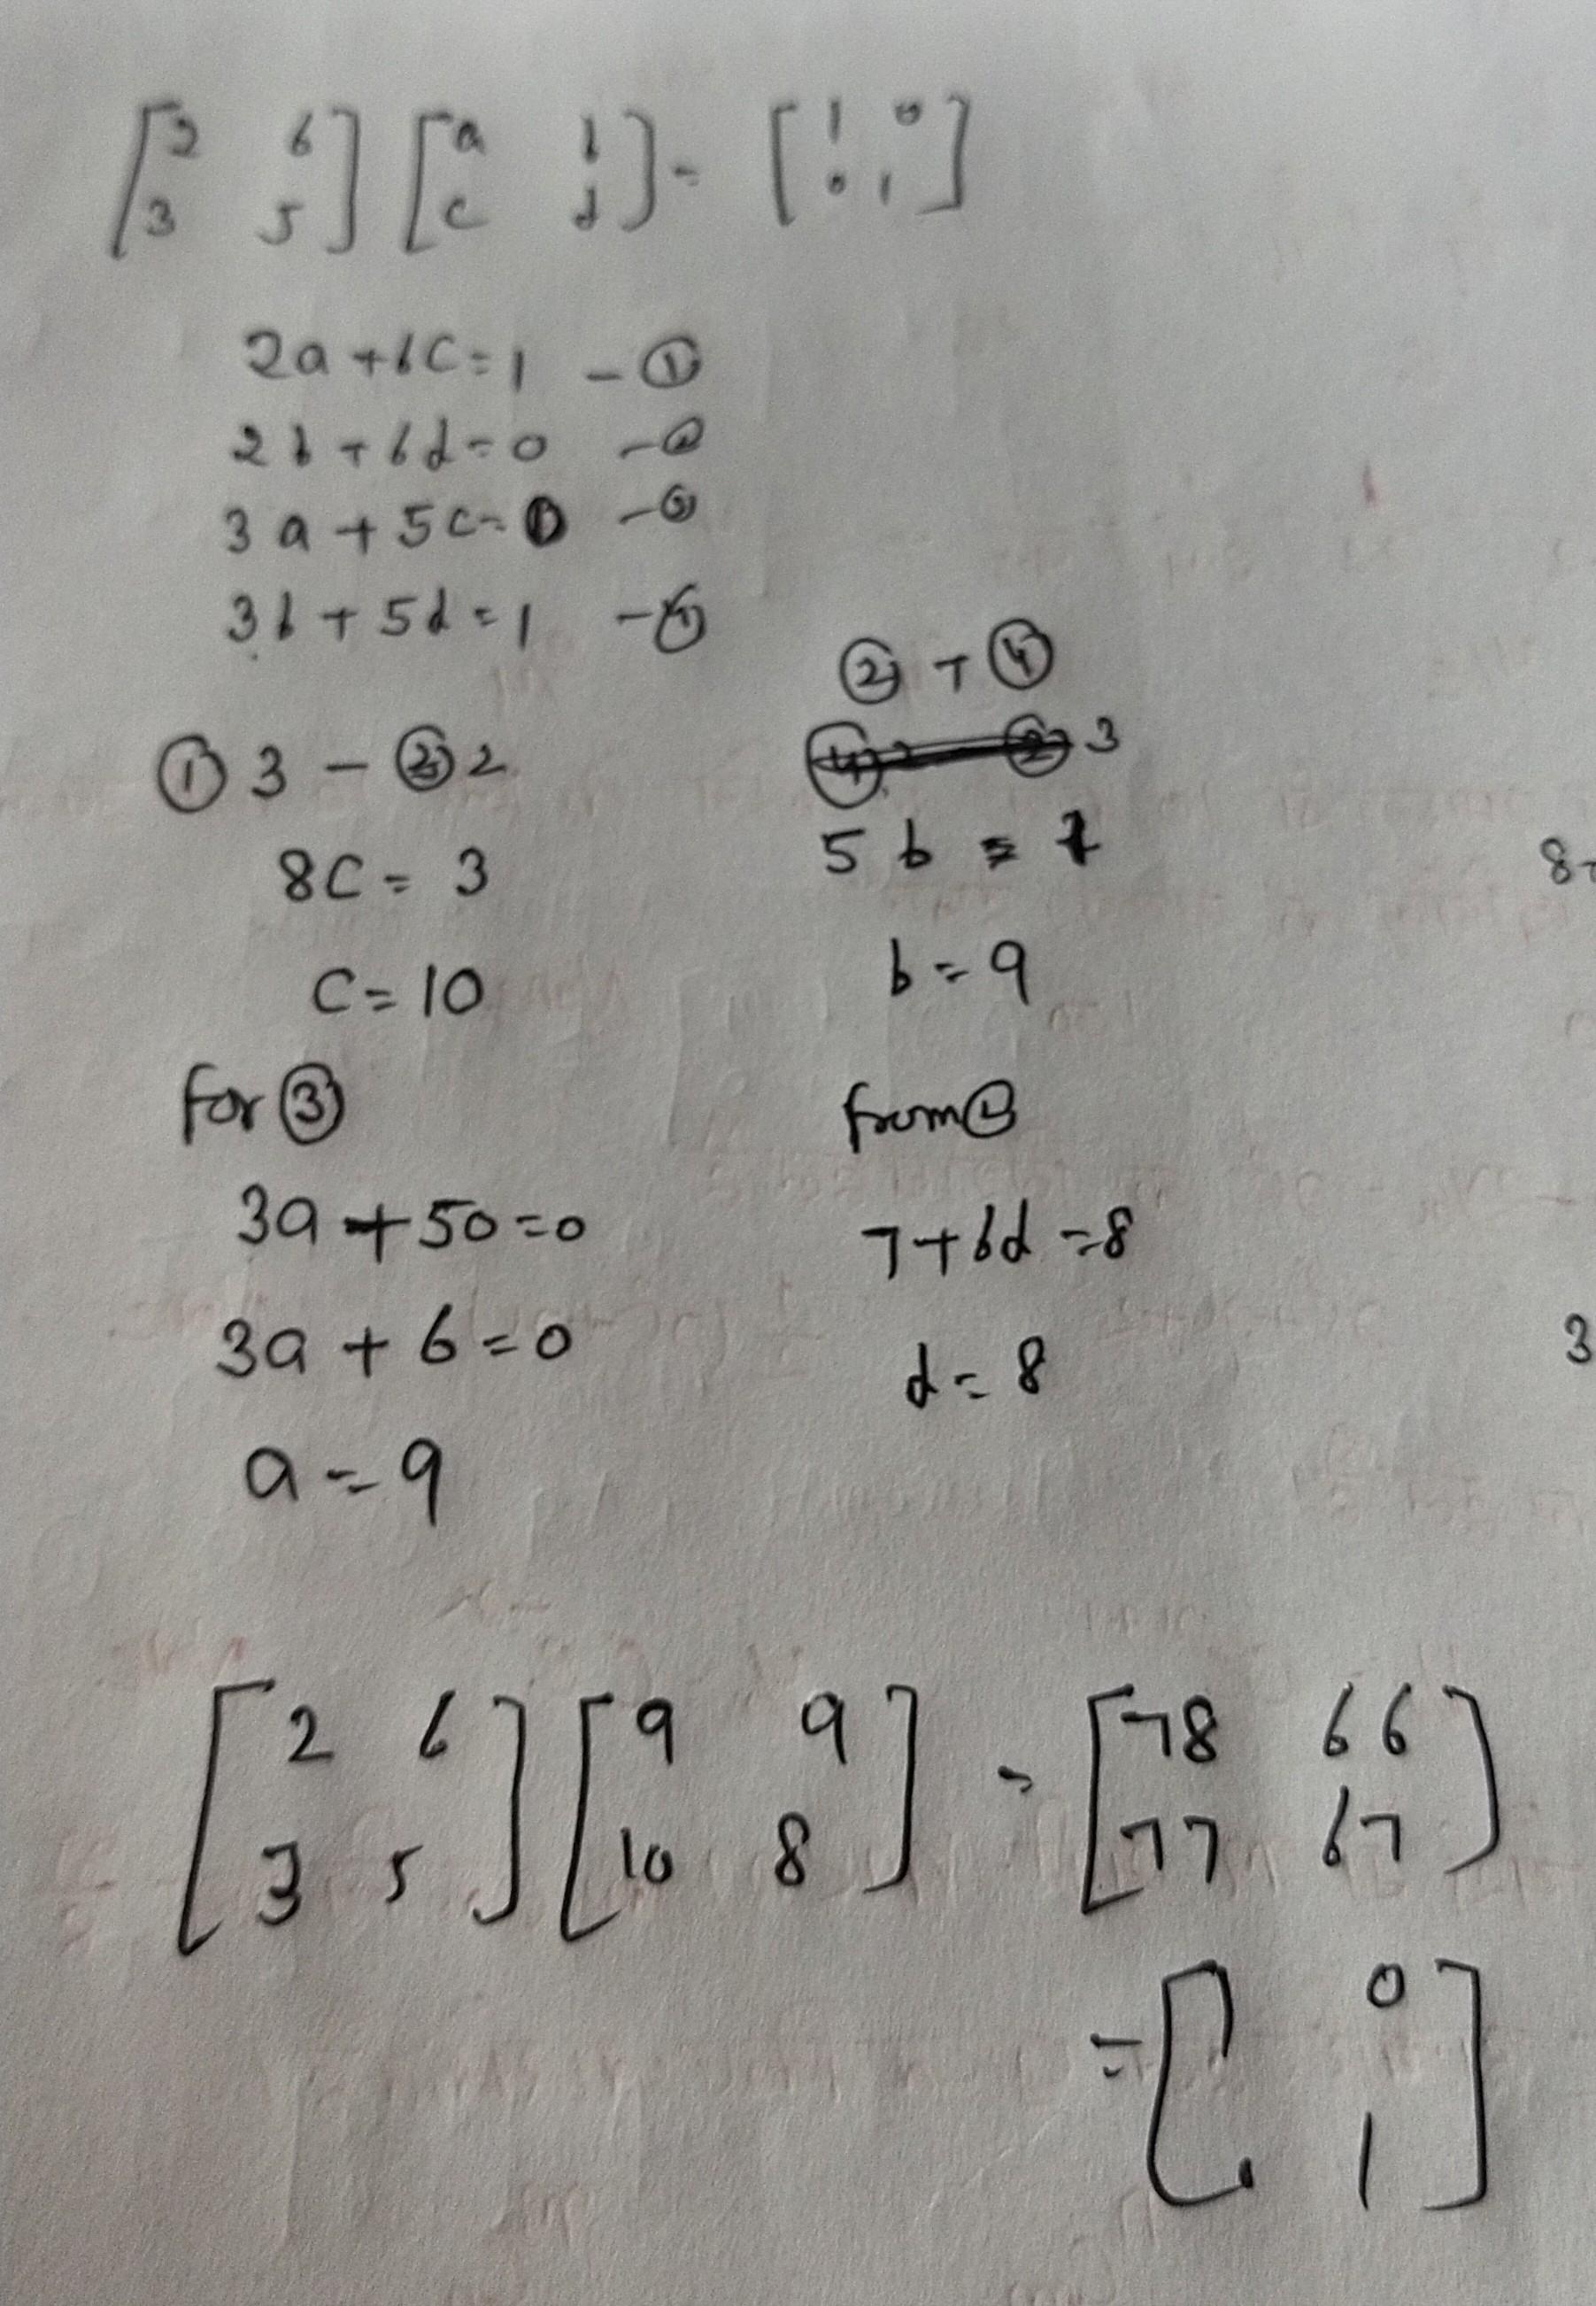 [2 6
3 5] [a b
c d] = [1 0
0 1]
2a + 6c = 1 - ①
2b + 6d = 0 - ②
3a + 5c = 0 - ③
3b + 5d = 1 - ④
① 3 - ② 2
8c = 3
c = 10
for ③
3a + 50 = 0
3a + 6 = 0
a = 9
② + ④
3
5b = 1
b = 9
from ②
7 + 6d = 8
d = 8
8
3
[2 6
3 5] [9 9
10 8] = [78 66
77 67]
= [1 0
0 1]